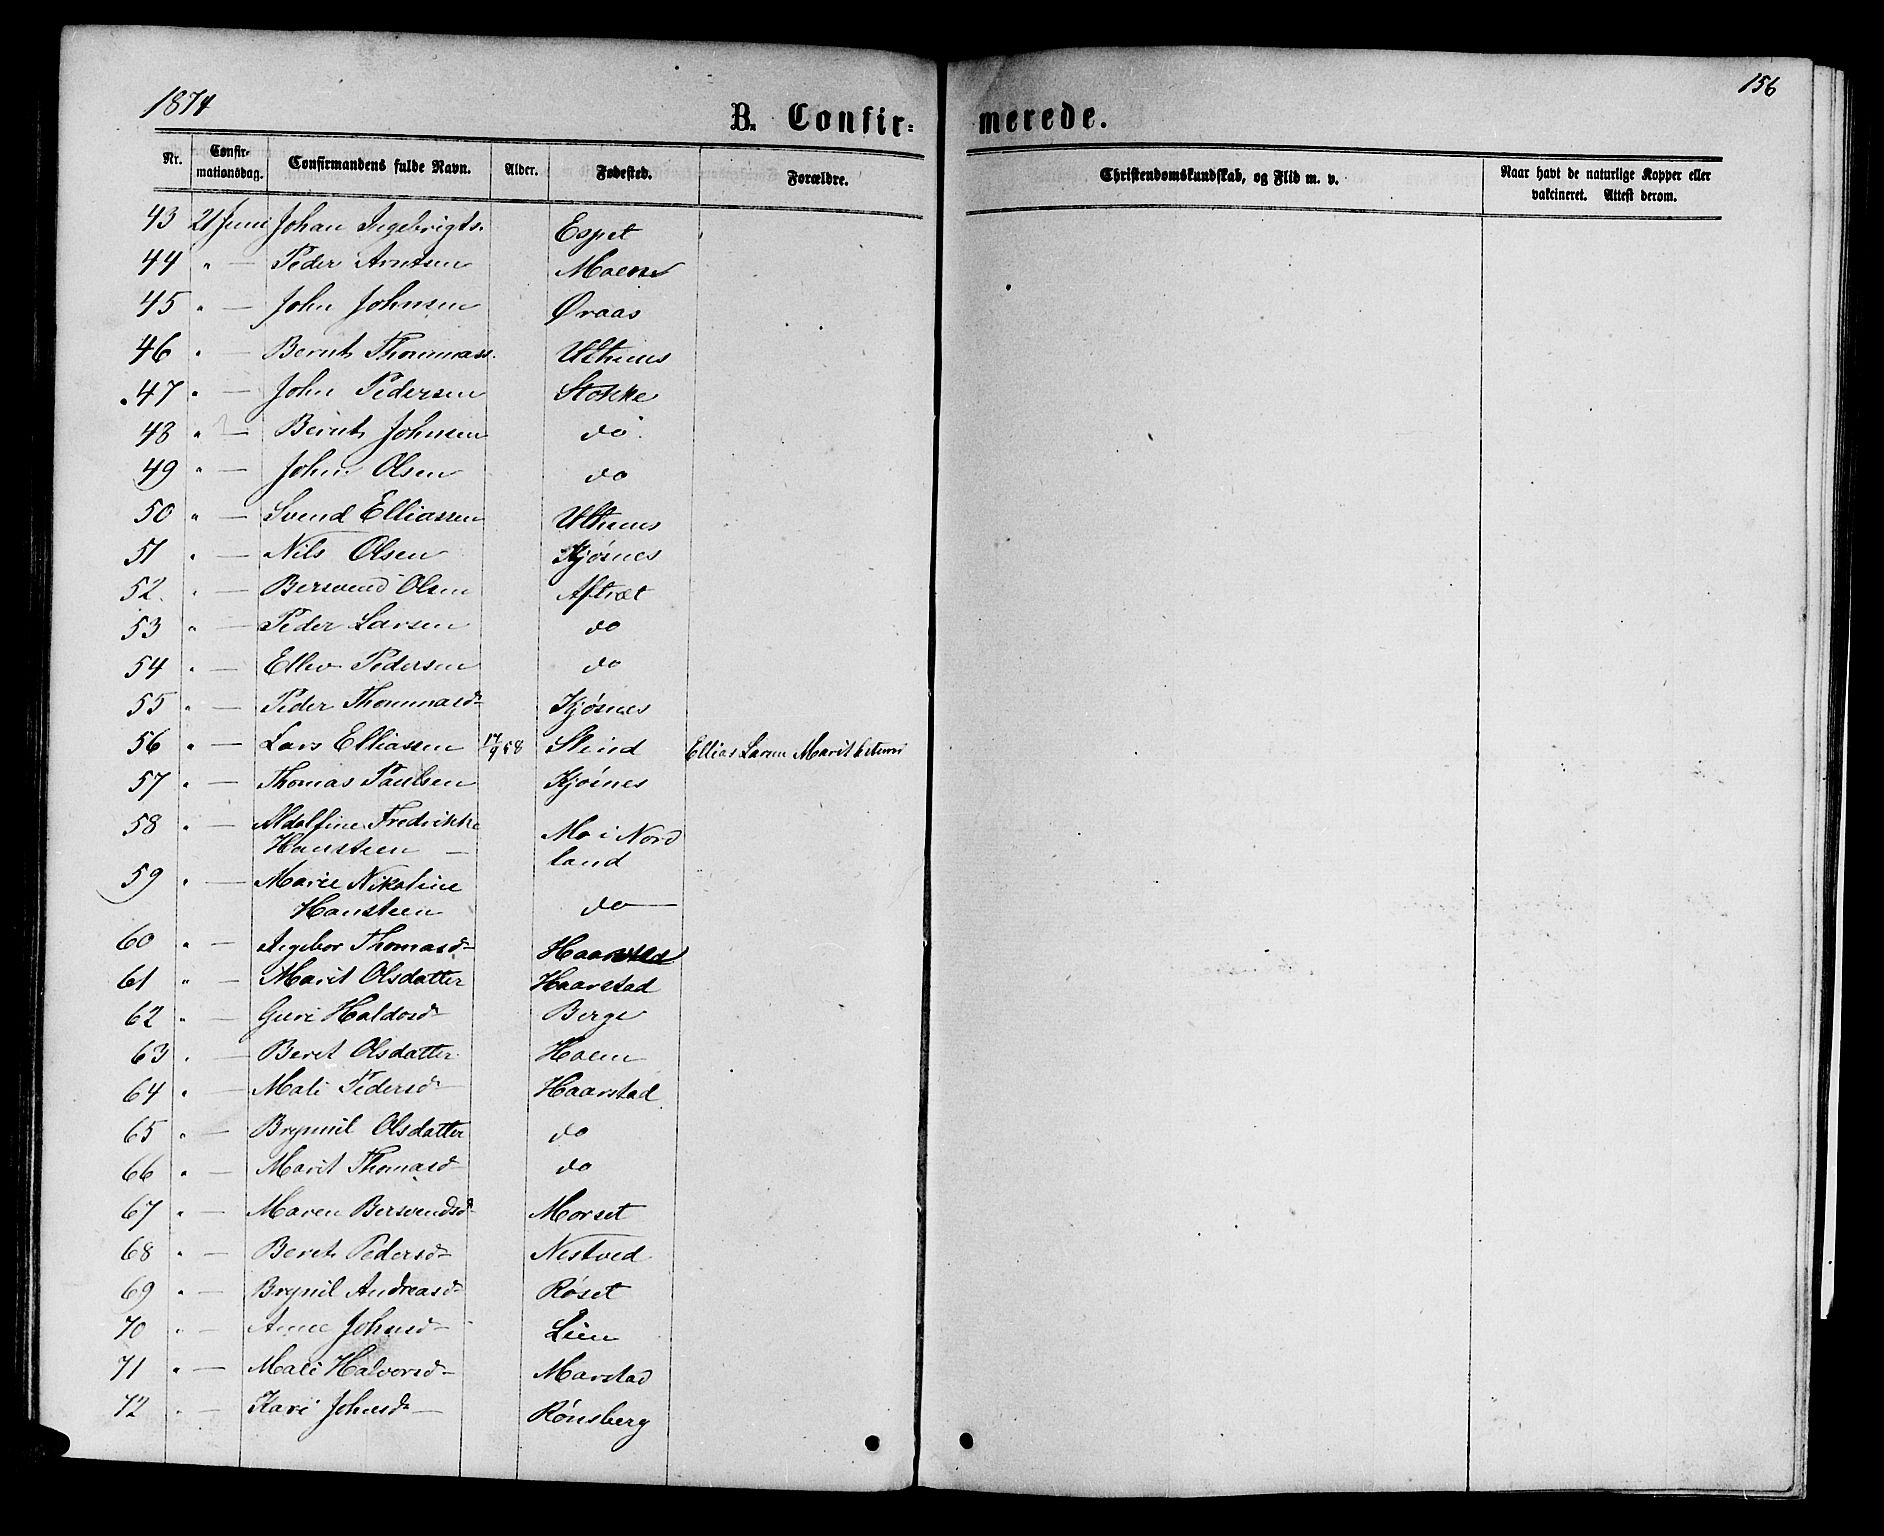 1874
156
B. Confir=
merede.
Nr. Confir-mationsdag. Confirmandens fulde Navn. Alder. Fødested. Forældre. Christendomskundskab, og Flid m. v. Naar havt de naturlige Kopper eller vakcineret. Attest derom.
43 21 Juni Johan Ingebrigts. Espet
44 " — Peder Arntsen Moene
45 " — John Johnsen Øraas
46 " — Bernt Thommass. Uthuus
47 " — John Pedersen Stokke
48 " — Bernt Johnsen do
49 " — John Olsen do
50 " — Svend Elliassen Uthuus
51 " — Nils Olsen Kjøsnes
52 " — Bersvend Olsen Aftret
53 " — Peder Larsen do
54 " — Ellev Pedersen do
55 " — Peder Thommasd Kjøsnes
56 " — Lars Elliassen 17/9 58 Slind Ellias Larsen Marit
57 " — Thomas Paulsen Kjøsnes
58 " — Aldolfine Fredrikke Mo i Nord
Hansteen — land
59 " — Marie Nikoline
Hansteen do —
60 " — Ingebor Thomasd Haarstad
61 " — Marit Olsdatter Haarstad
62 " — Guri Haldosd Berge
63 " — Beret Olsdatter Hoem
64 " — Mali Pedersd Haarstad
65 " — Brynnil Olsdatter do
66 " — Marit Thomasd do
67 " — Maren Bersvendsd Morset
68 " — Beret Pedersd Nestved
69 " — Brynil Andreasd Røset
70 " — Anne Johnsd Lien
71 " — Mali Halvorsd Marstad
72 " — Kari Johnsd Rønsberg